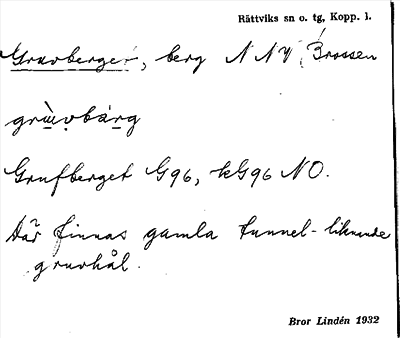 Rättviks sn o. tg, Kopp. l.
Gruvberget, berg NNV Brossen
Grufberget G96, kG96 NO.
Här finnas gamla tunnel-liknande
gruvhål.
Bror Lindén 1932